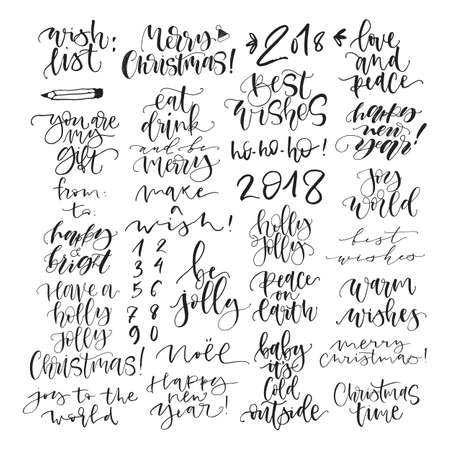 wish:
list
you are
my
gift
from:
to:
happy
&
bright
Have a
holly
jolly
Christmas!
joy to the
world
Merry
Christmas!
eat
drink
and be
merry
make
a
wish!
1 2
3 4
5 6
7 8
9 0
be
jolly
Noël
Happy
new
year!
2018
Best
wishes
ho-ho-ho!
2018
holly
jolly
peace
on
earth
baby
it's
cold
outside
love
and
peace
happy
new
year!
Joy
world
best
wishes
warm
wishes
merry
christmas!
Christmas
time